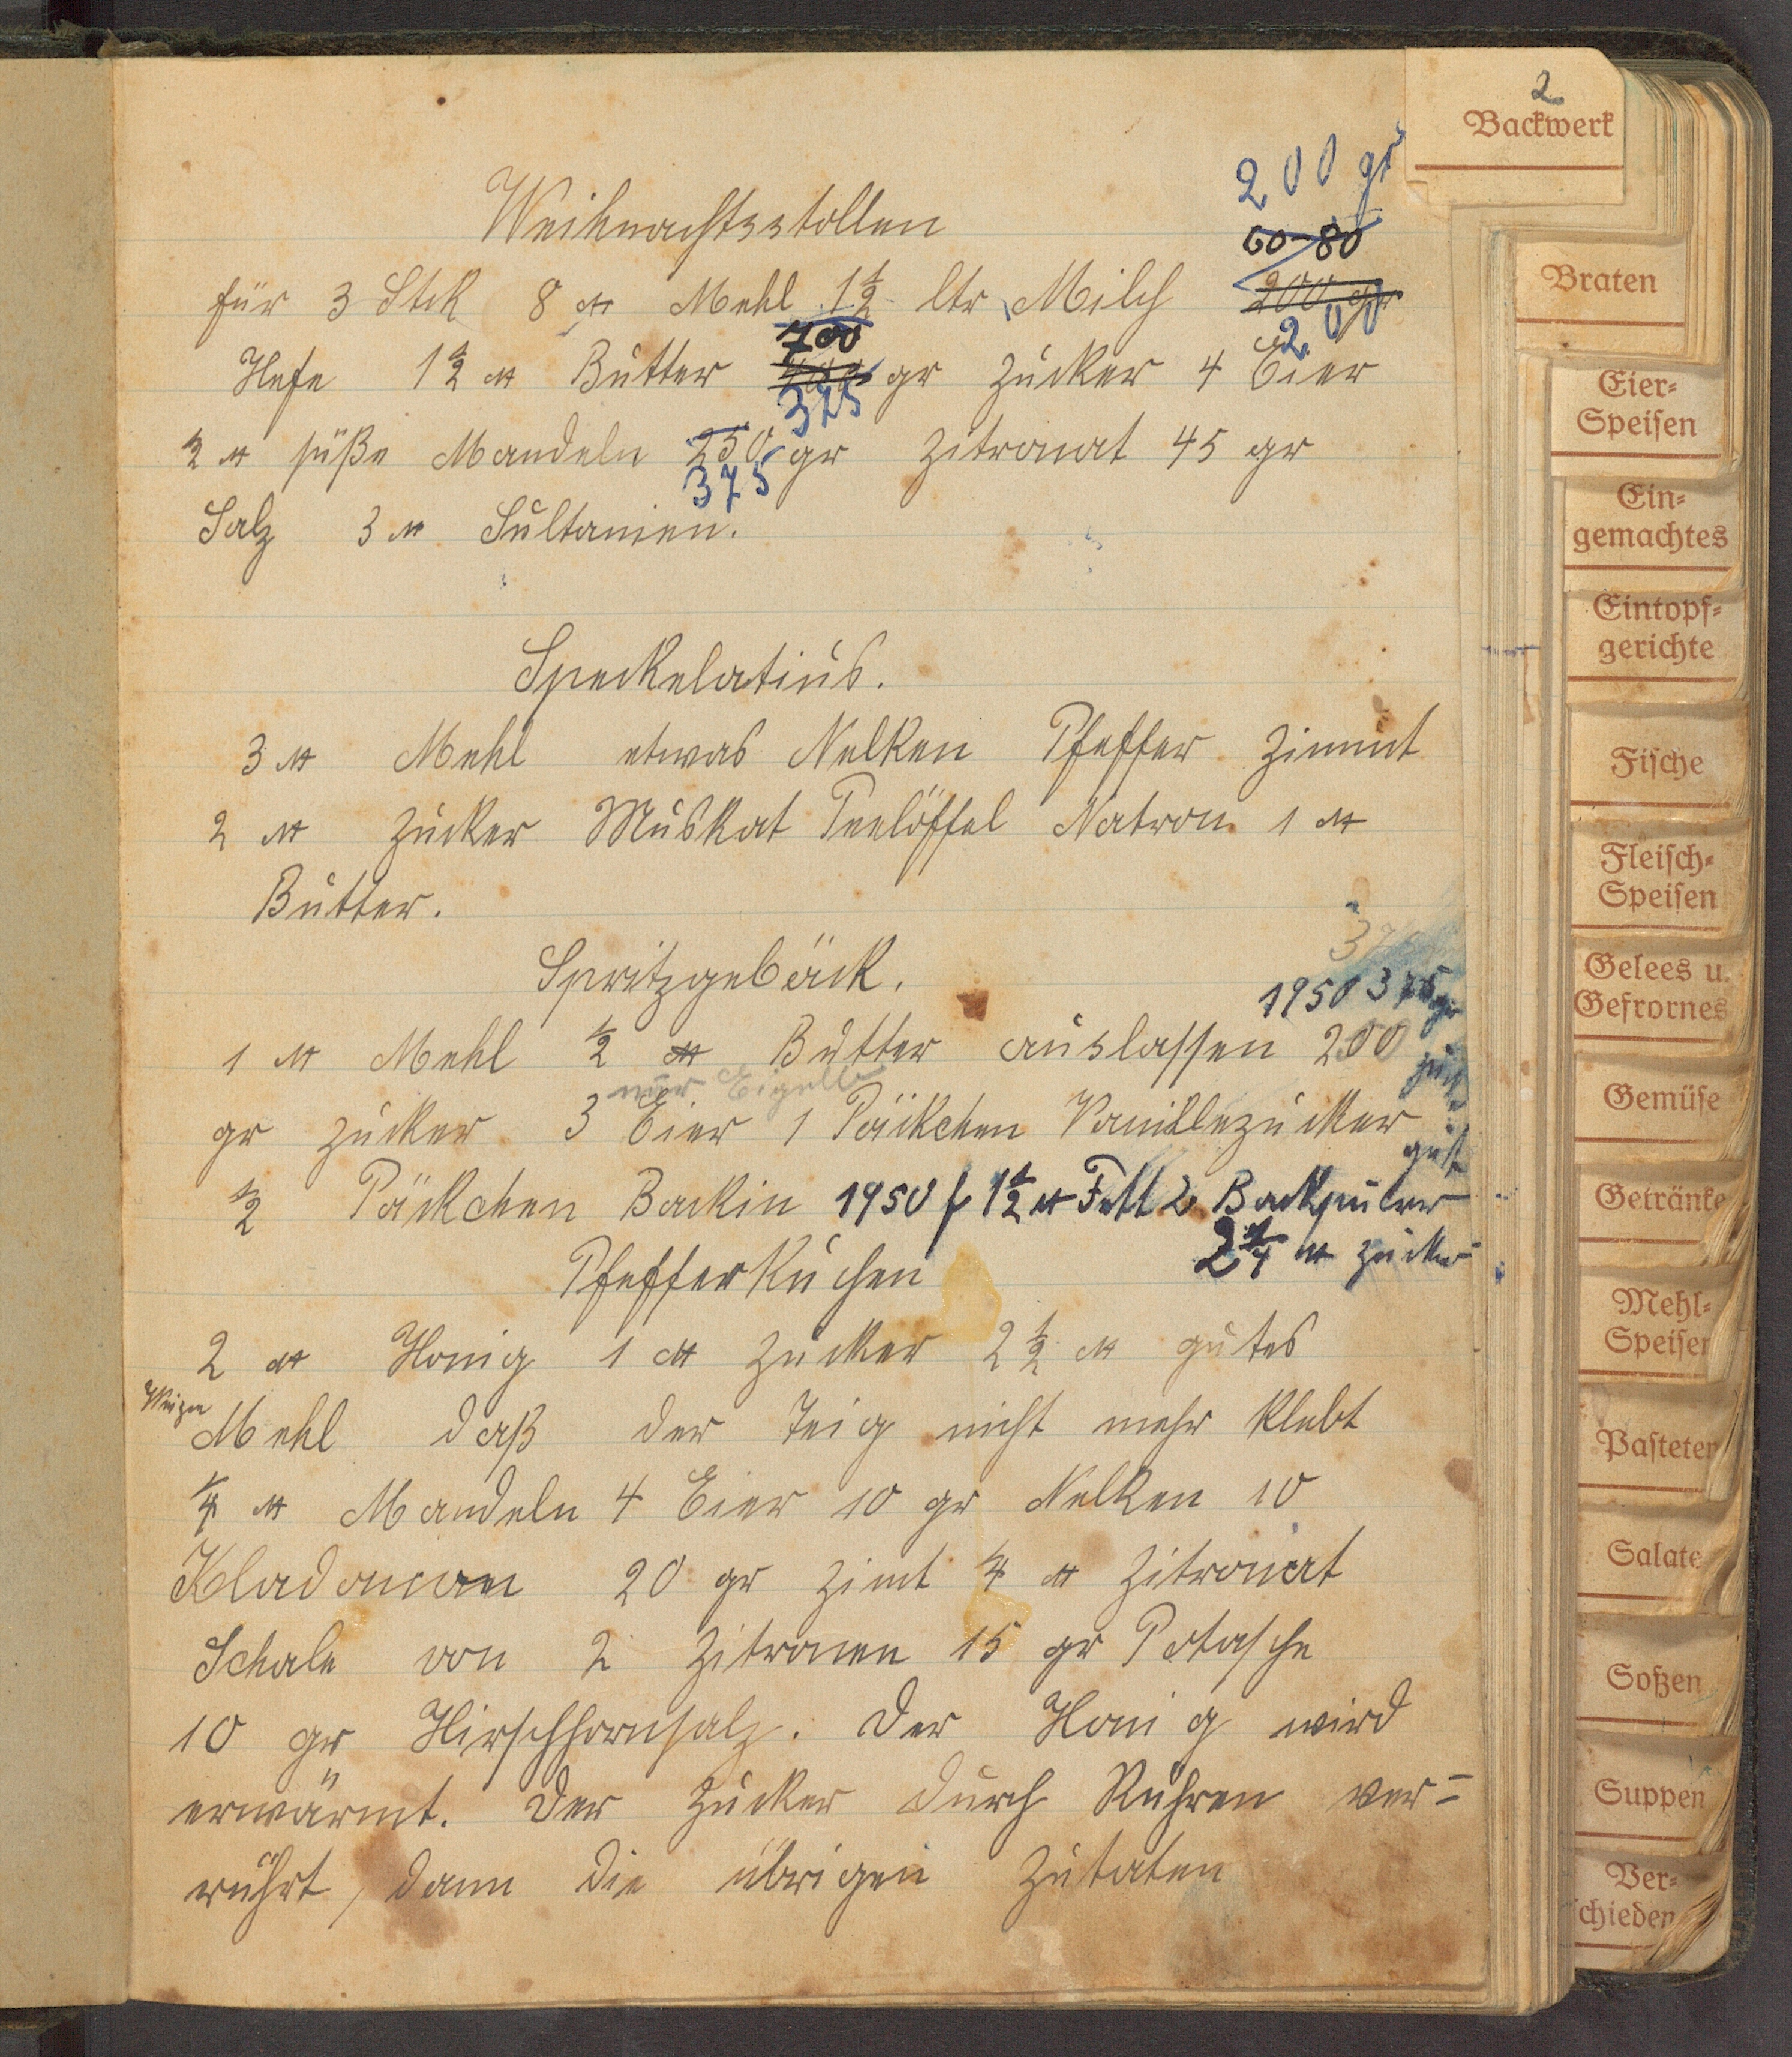 2
Backwerk
200 gr
Weihnachtsstollen
60-80
für 3 Stck 8 ℔ Mehl 1½ ltr Milch 200 gr
700 200
Hefe 1½ ℔ Butter gr Zucker 4 Eier
375
½ ℔ süße Mandeln 250 gr Zitronat 45 gr
375
Salz 3 ℔ Sultanien.
Speckelatius.
3 ℔ Mehl etwas Nelken Pfeffer Zimmt
2 ℔ Zucker Muskat Teelöffel Natron 1 ℔
Butter.
Spritzgebäck.
1950 375 gr
1 ℔ Mehl ½ ℔ Butter auslassen 200
nur Eigelb
gr Zucker 3 Eier 1 Päckchen Vanillezucker
gut
½ Päckchen Backin 1950 f 1½ ℔ Fett 2 Backpulver
2¼ ℔ Zucker
Pfefferkuchen
2 ℔ Honig 1 ℔ Zucker 2½ ℔ gutes
Weizen
Mehl daß der Teig nicht mehr klebt
¼ ℔ Mandeln 4 Eier 10 gr Nelken 10
Kladaman 20 gr Zimt ¼ ℔ Zitronat
Schale von 2 Zitronen 15 gr Potasche
10 gr Hirschhornsalz. Der Honig wird
erwärmt. Der Zucker durch Rühren ver-
rührt, dann die übrigen Zutaten
Braten
Eier-
Speisen
Ein-
gemachtes
Eintopf-
gerichte
Fische
Fleisch-
Speisen
Gelees u.
Gefrornes
Gemüse
Getränke
Mehl-
Speisen
Pasteten
Salate
Soßen
Suppen
Ver-
schieden